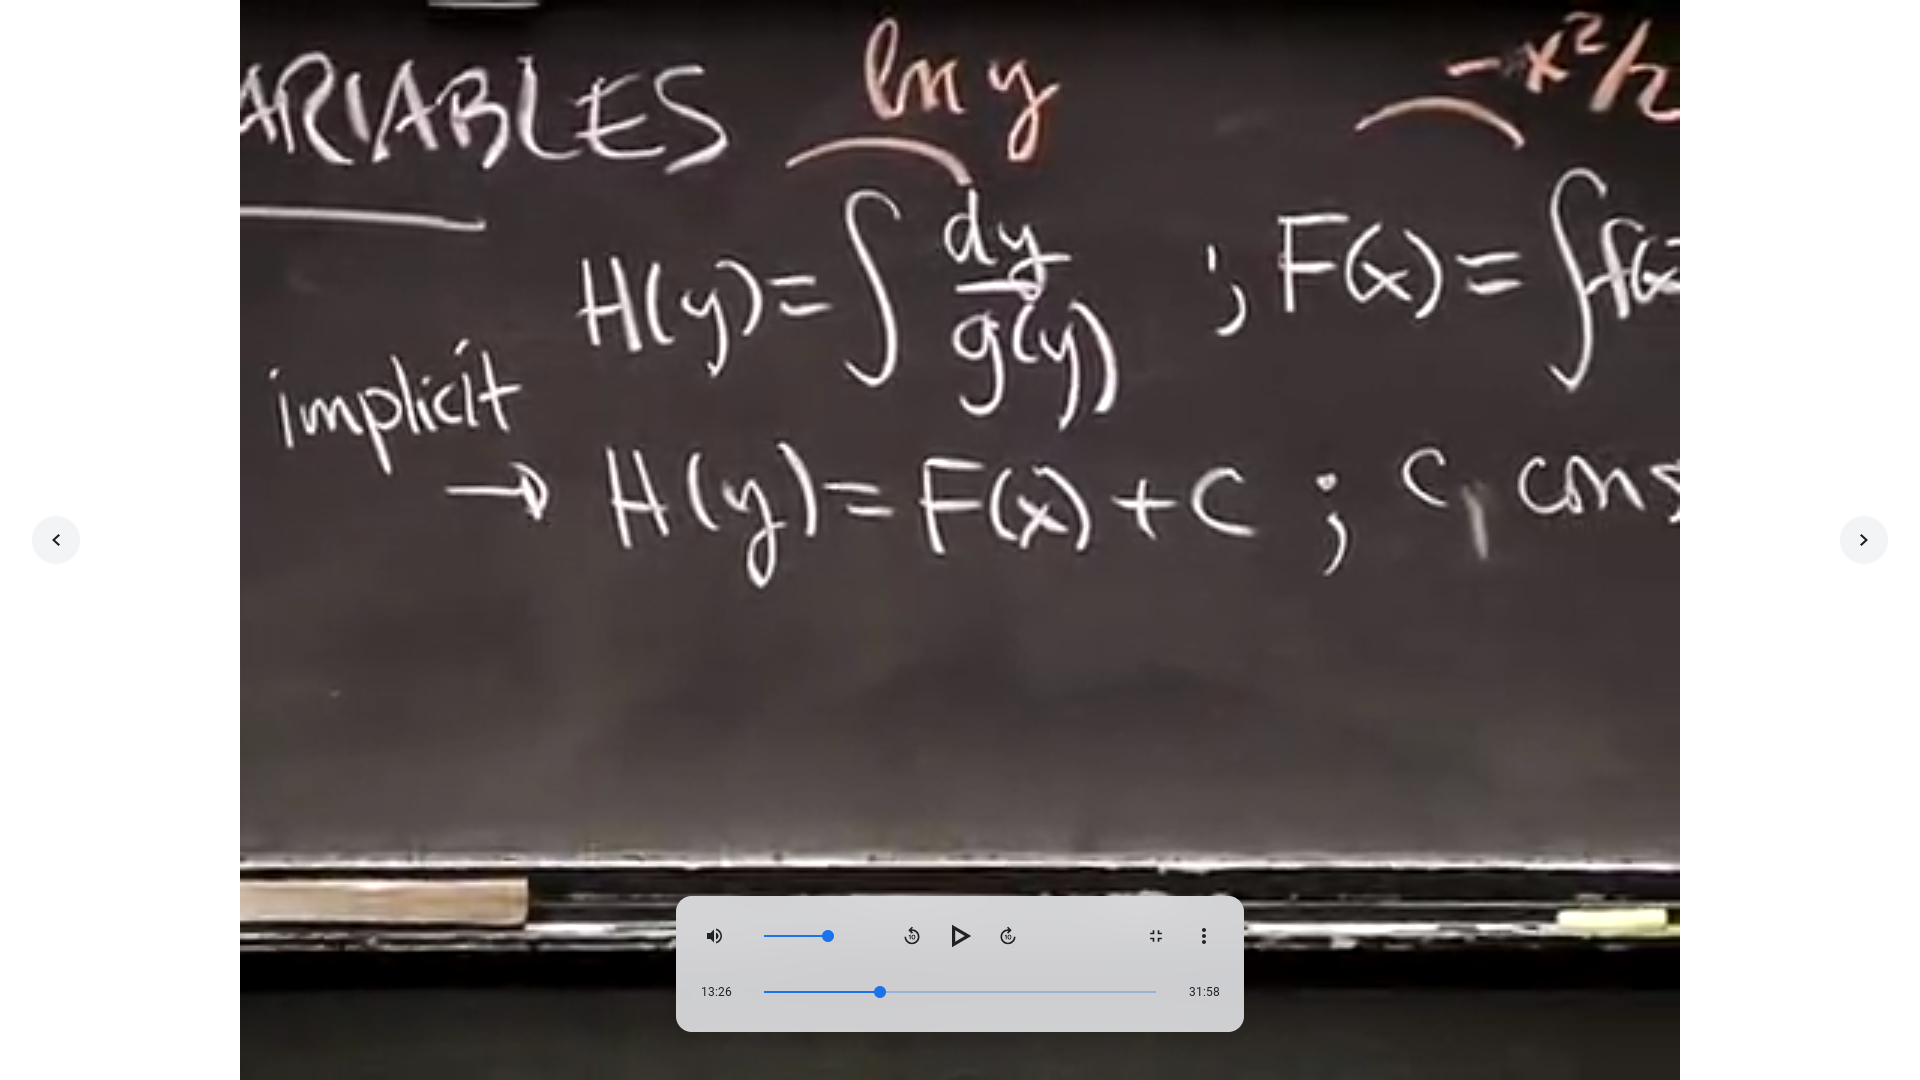 ARIABLES ln y -x²/2
H(y) = ∫ dy/g(y) ; F(x) = ∫ f(x
implicit
→ H(y) = F(x) + c ; c, cons
10 10
13:26 31:58